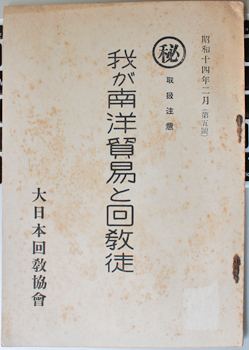 昭和十四年二月（第五號）
㊙
取扱注意
我が南洋貿易と回敎徒
大日本回敎協會